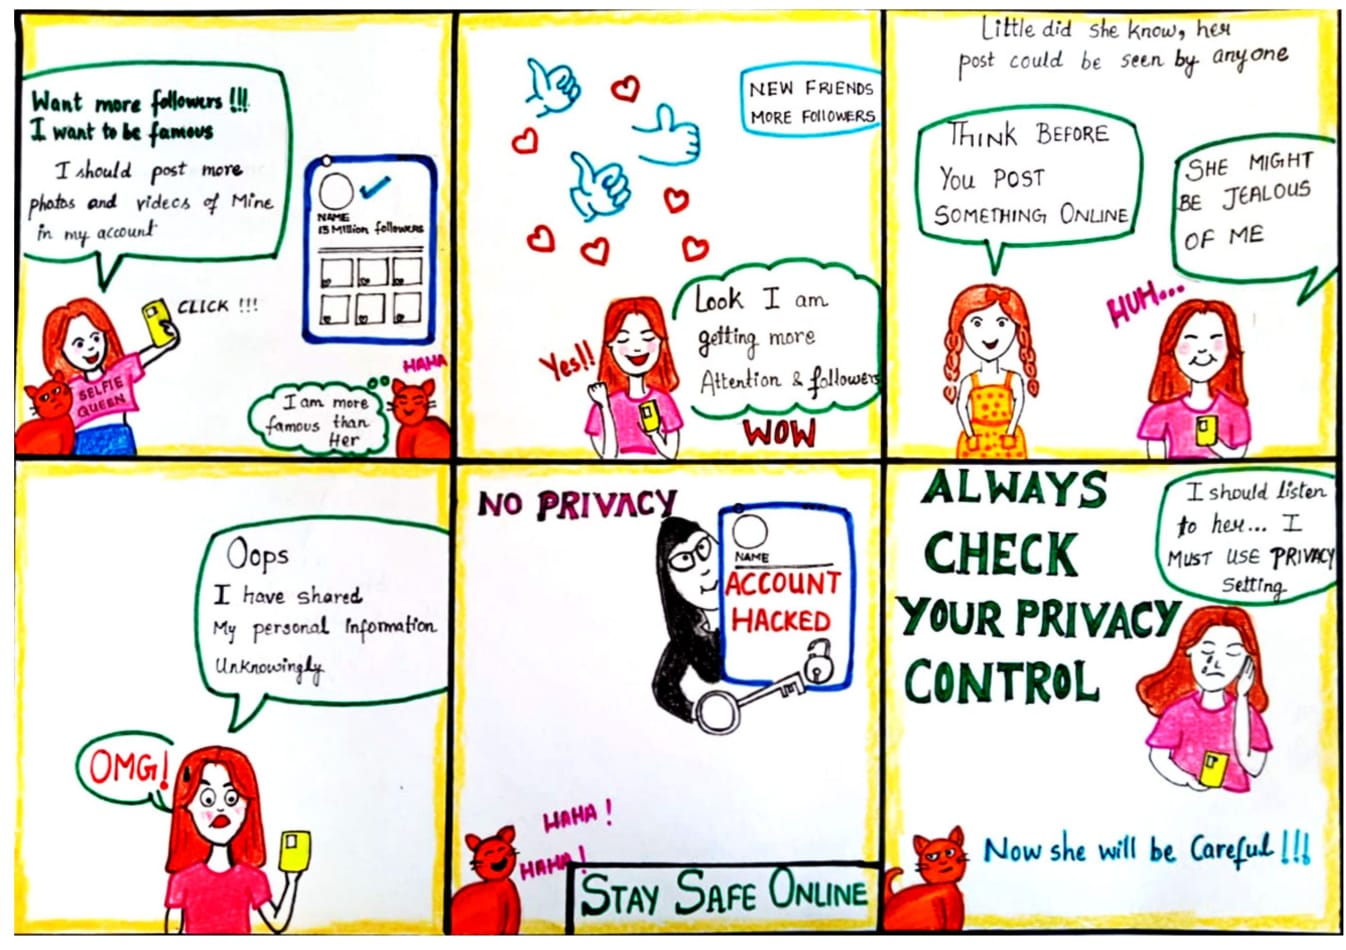 Want more followers !!!
I want to be famous
I should post more
photos and videos of Mine
in my account
NAME
15 Million followers
CLICK !!!
SELFIE
QUEEN
HAHA
I am more
famous than
Her
NEW FRIENDS
MORE FOLLOWERS
Yes!!
Look I am
getting more
Attention & followers
WOW
Little did she know, her
post could be seen by anyone
THINK BEFORE
YOU POST
SOMETHING ONLINE
SHE MIGHT
BE JEALOUS
OF ME
HUH...
Oops
I have shared
My personal Information
Unknowingly
OMG!
NO PRIVACY
NAME
ACCOUNT
HACKED
HAHA !
HAHA !
STAY SAFE ONLINE
ALWAYS
CHECK
YOUR PRIVACY
CONTROL
I should listen
to her... I
MUST USE PRIVACY
Setting
Now she will be Careful !!!